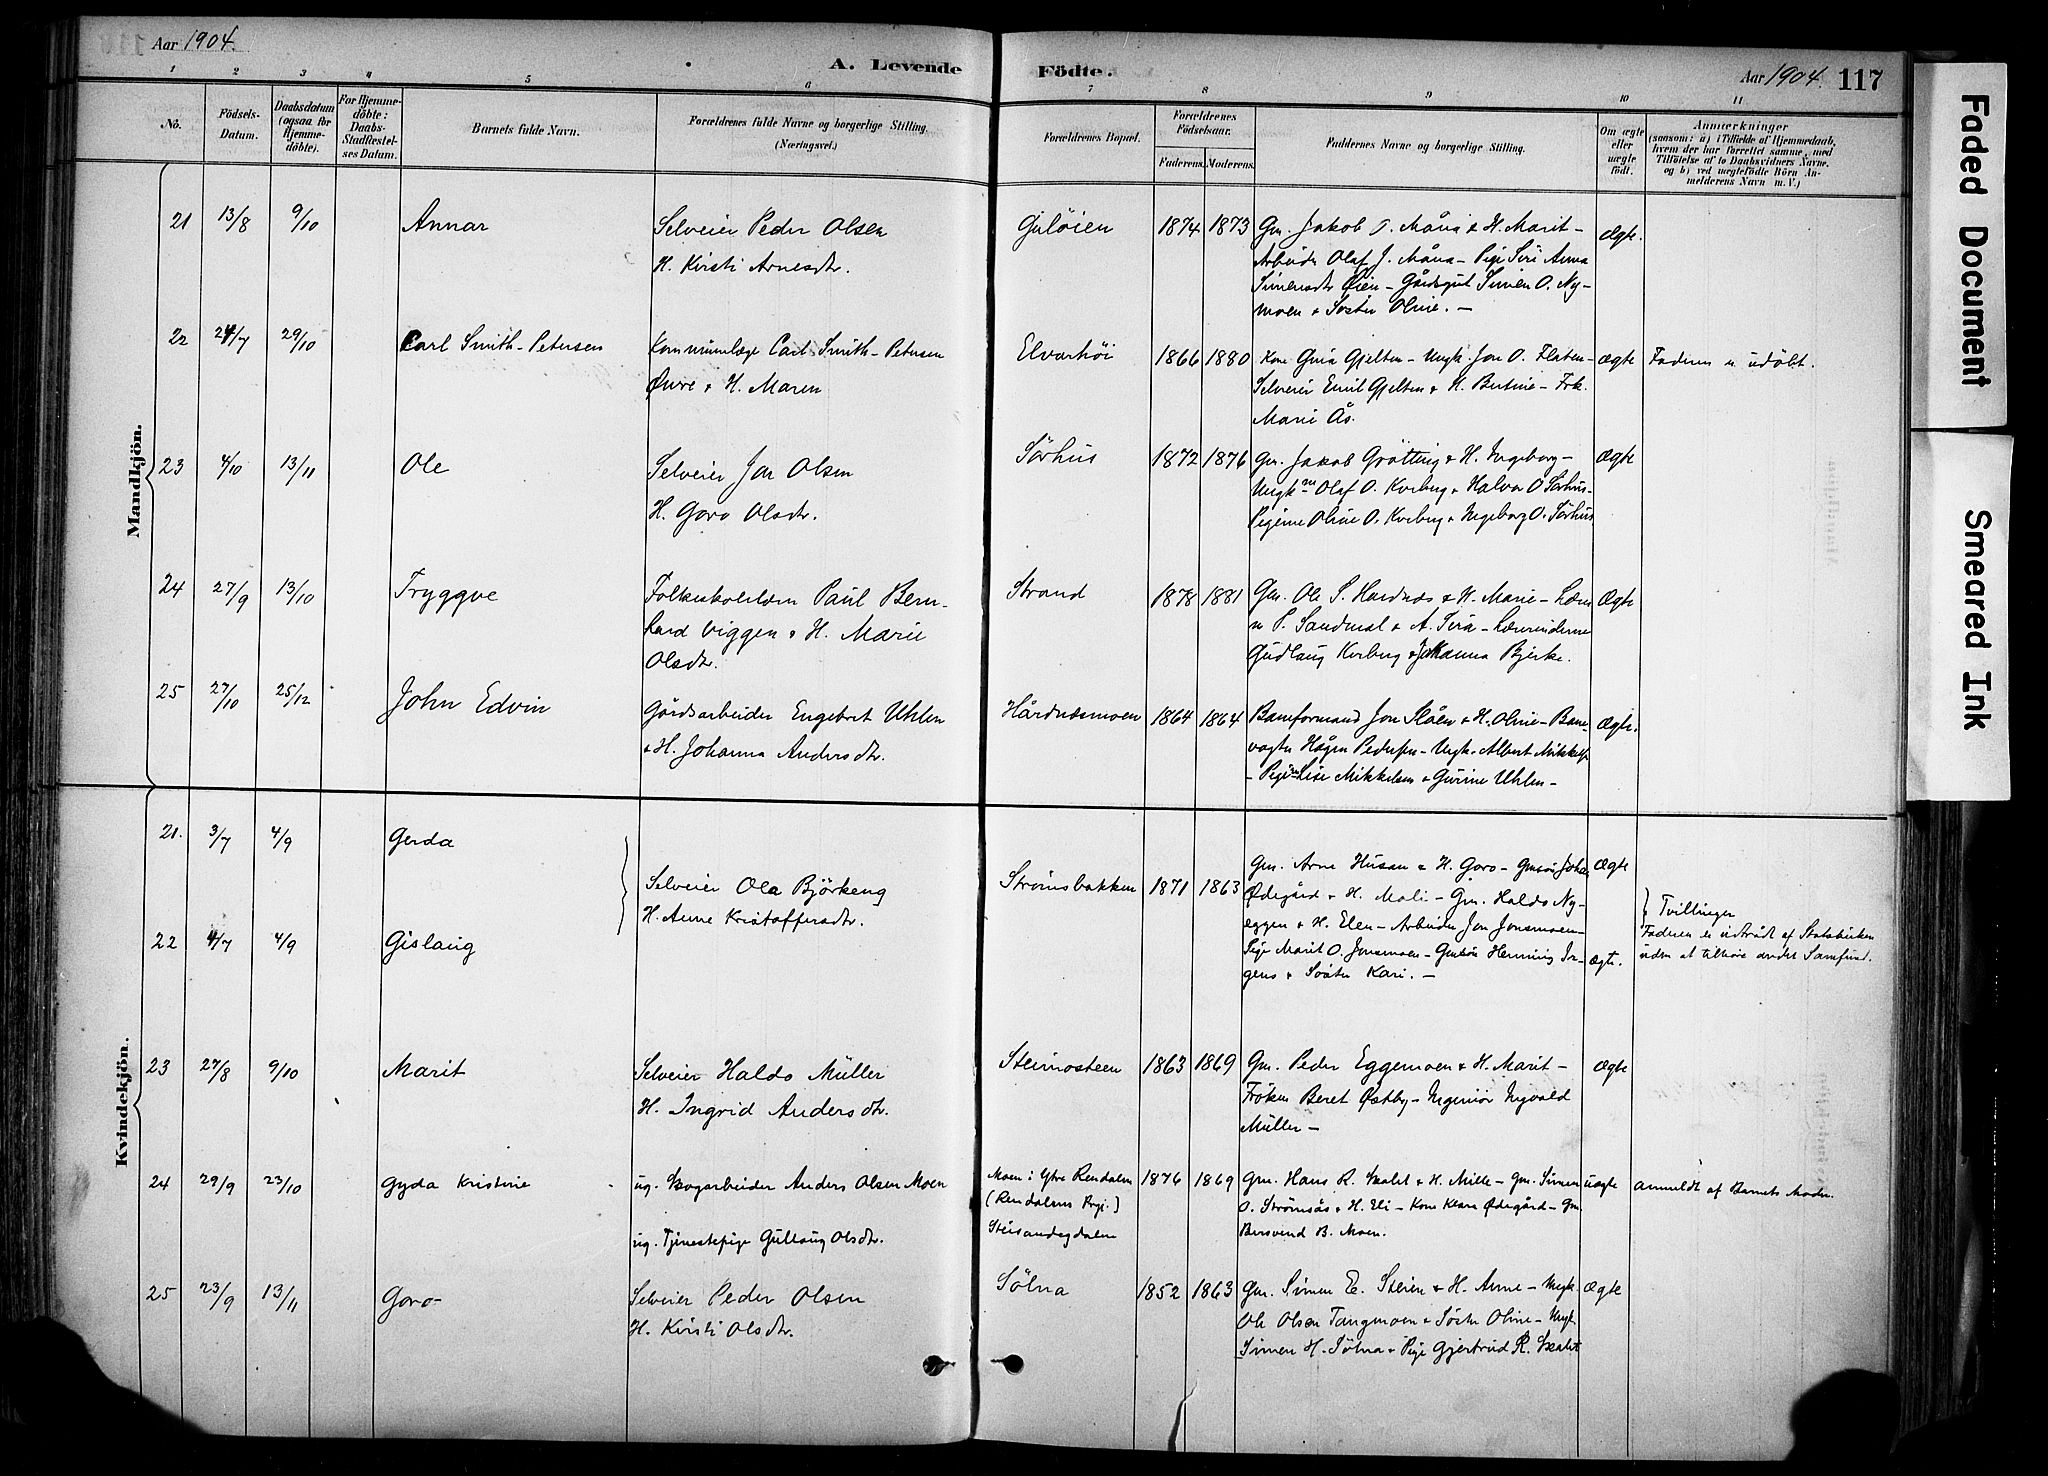 Aar 1904.
A. Levende Födte.
Aar 1904. 117
1 2 3 4 5 6 7 8 9 10 11
No.
Födsels-Datum.
Daabsdatum (ogsaa for Hjemmedöbte).
For Hjemmedöbte: Daabs-Stadfæstelses Datum.
Barnets fulde Navn.
Forældrenes fulde Navne og borgerlige Stilling. (Næringsvei.)
Forældrenes Bopæl.
Forældrenes Födselsaar.
Faderens. Moderens.
Faddernes Navne og borgerlige Stilling.
Om ægte eller uægte födt.
Anmærkninger
(saasom: a) i Tilfælde af Hjemmedaab, hvem der har forrettet samme, med Tilföielse af to Daabsvidners Navne. og b) ved uægtefödte Börn Anmelderens Navn m. V.)
Mandkjön.
21 13/8 9/10 Annar Selveier Peder Olsen Guløien 1874 1873 Gm. Jakob O. Måna & H. Marit - Ægte.
H. Kirsti Arnesdtr. Arbeider Olaf J. Måna - Pige Siri Anna
Simensdtr Øien - Gårdsgut Simen O. Ny-
moen & Søster Oline. -
22 24/7 29/10 Carl Smith-Petersen Kommunelæge Carl Smith-Petersen Elvarhöi 1866 1880 Kone Gjelten - Ungk. Jon O. Flaten - Ægte Faderen udöbt.
Øvre & H. Maren Selveier Emil Gjelten & H. Bertine - Frk.
Marie Ås.
23 4/10 13/11 Ole Selveier Jon Olsen Sörhus 1872 1876 Gm. Jakob Gråtting & H. Ingeborg - Ægte
H. Goro Olsdtr. Ungkne Olaf O. Korberg & Halvor O. Sörhus -
Pigerne Oline O. Korberg & Ingeborg O. Sörhus
24 27/9 13/10 Tryggve Folkeskolelærer Paul Bern- Strand 1878 1881 Gm. Ole S. Hardnæs & H. Marie - Lærer Ægte
hard Viggen & H. Marie P. Sandmæl & A. - Lærerinderne
Olsdtr. Gudlaug Korberg & Johanna Bjerke.
25 27/10 25/12 John Edvin Gårdsarbeider Engebret Uhlen Hårdnæsmoen 1864 1864 Baneformand Jon & H. Oline - Bane- Ægte.
& H. Johanna Andersdtr. vogter Hågen Pedersen - Ungk. Albert Mikkels.
- Pigerne Lise Mikkelsen & Gurine Uhlen -
Kvindekjön.
21. 3/7 4/9 Gerda Gm. Arne Husan & H. Goro - Gmsön Johan Ægte
Selveier Ola Björkeng Strömsbakken 1871 1863 Ødegård & H. Mali - Gm. Haldo Ny-
H. Anne Kristoffersdtr. eggen & H. Elen - Arbeider Jon Jonsmoen - } Tvillinger
22 4/7 4/9 Gislaug Pige Marit O. Jonsmoen - Gmsön Henning - Ægte. Faderen er udtrådt af Statskirken
gens & Søster Kari. - uden at tilhøre andet Samfund.
23 27/8 9/10 Marit Selveier Haldo Müller Steimosteen 1863 1869 Gm. Peder Eggemoen & H. Marit - Ægte
H. Ingrid Andersdtr. Fröken Beret Østby - Ingeniør Ingvald
Müller -
24 29/9 23/10 Gyda Kristine ug. Skogarbeider Anders Olsen Moen Moen i Ytre Rendalen 1876 1869 Gm. Hans R. Skalet & H. Mille - Gm. Simen uægte anmeldt af Barnets Moder.
(Rendalens Prgj.) O. Strömsås & H. Eli - Kone Klara Ødegård - Gm.
ug. Tjenestepige Gullaug Olsdtr. Steisandegdalen Bersvend B. Moen.
25 23/9 13/11 Goro - Selveier Peder Olsen Sölna 1852 1863 Gm. Simen E. Steien & H. Anne - Ungk. Ægte
H. Kirsti Olsdtr. Ole Olsen Tangmoen & Söster Oline - Ungk.
Simen H. Sölna & Pige Gjertrud R. Skalet
Faded Document
Smeared Ink